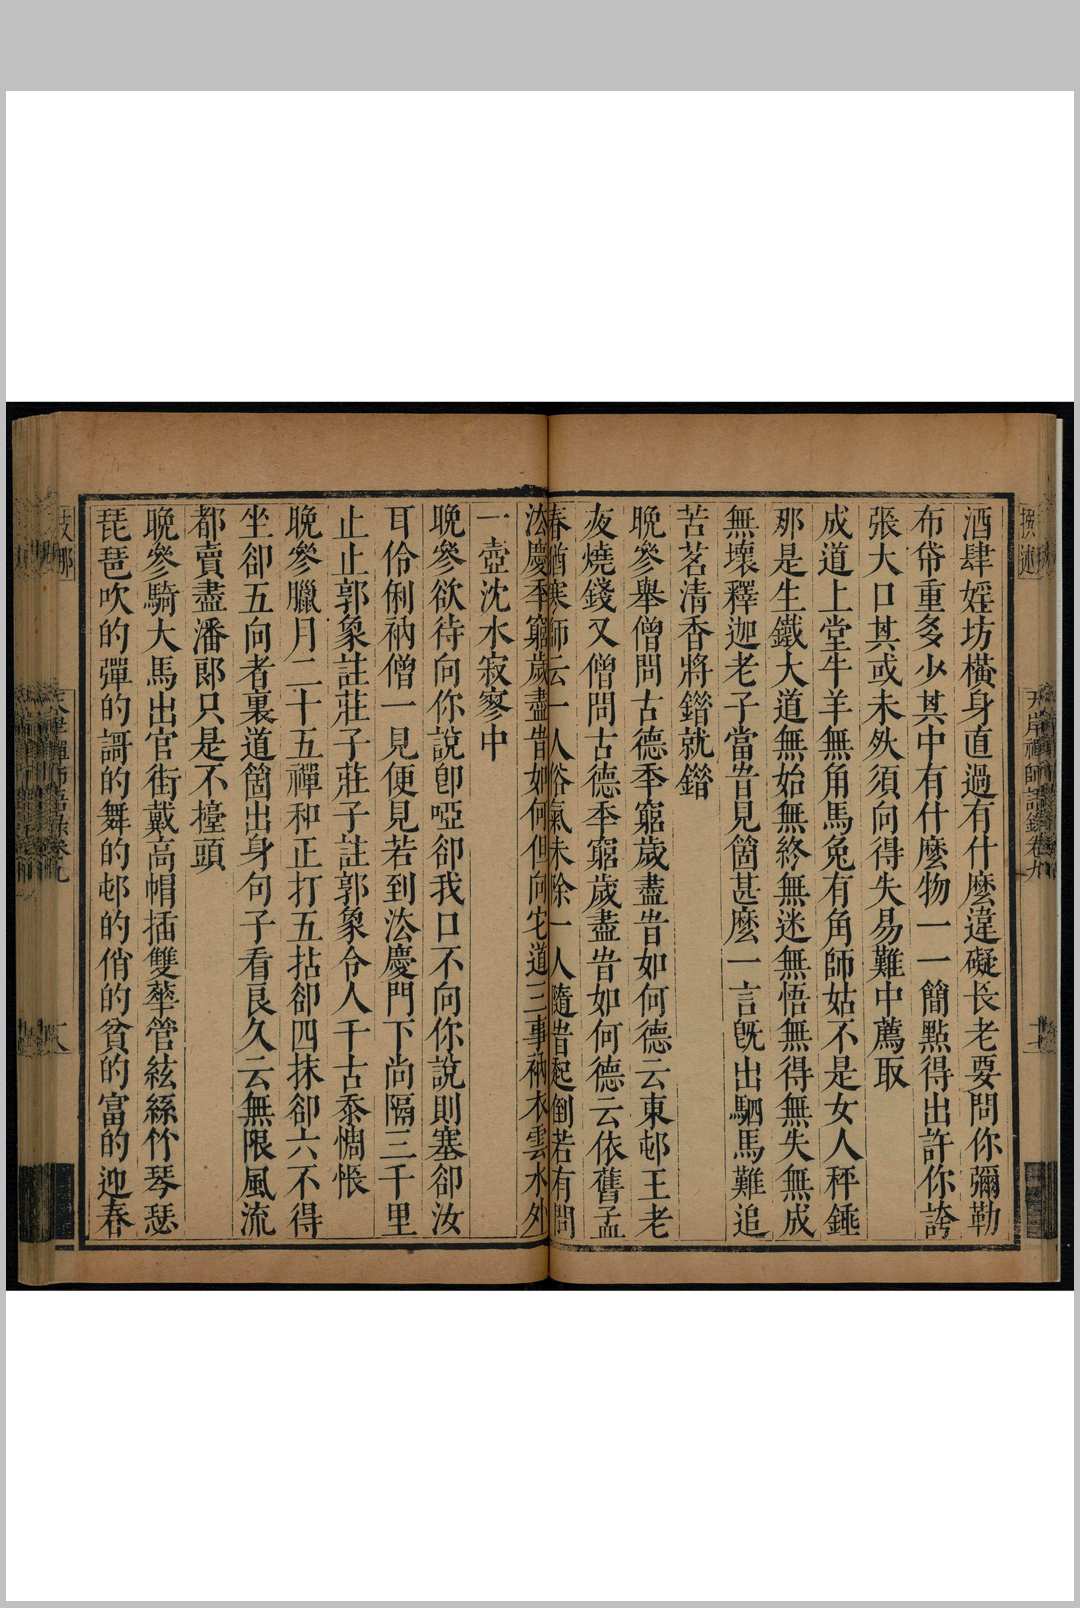 酒肆婬坊橫身直過有什麼違礙长老要問你彌勒
布帒重多少其中有什麼物一一簡點得出許你誇
張大口其或未然須向得失易難中薦取
成道上堂牛羊無角馬兔有角師姑不是女人秤錘
那是生鐵大道無始無終無迷無悟無得無失無成
無壞釋迦老子當旹見箇甚麼一言旣出駟馬難追
苦茗清香將錯就錯
晚參舉僧問古德季窮歲盡旹如何德云東邨王老
夜燒錢又僧問古德季窮歲盡旹如何德云依舊孟
春猶寒師云一人俗氣未除一人隨旹起倒若有問
汯慶季窮歲盡旹如何但向它道三事衲衣雲水外
一壺沈水寂寥中
晚參欲待向你說卽啞卻我口不向你說則塞卻汝
耳伶俐衲僧一見便見若到汯慶門下尚隔三千里
止止郭象註莊子莊子註郭象令人千古忝惆悵
晚參臘月二十五禪和正打五拈卻四抹卻六不得
坐卻五向者裏道箇出身句子看良久云無限風流
都賣盡潘郎只是不擡頭
晚參騎大馬出官街戴高帽插雙蕐管絃絲竹琴瑟
琵琶吹的彈的謌的舞的邨的俏的貧的富的迎春